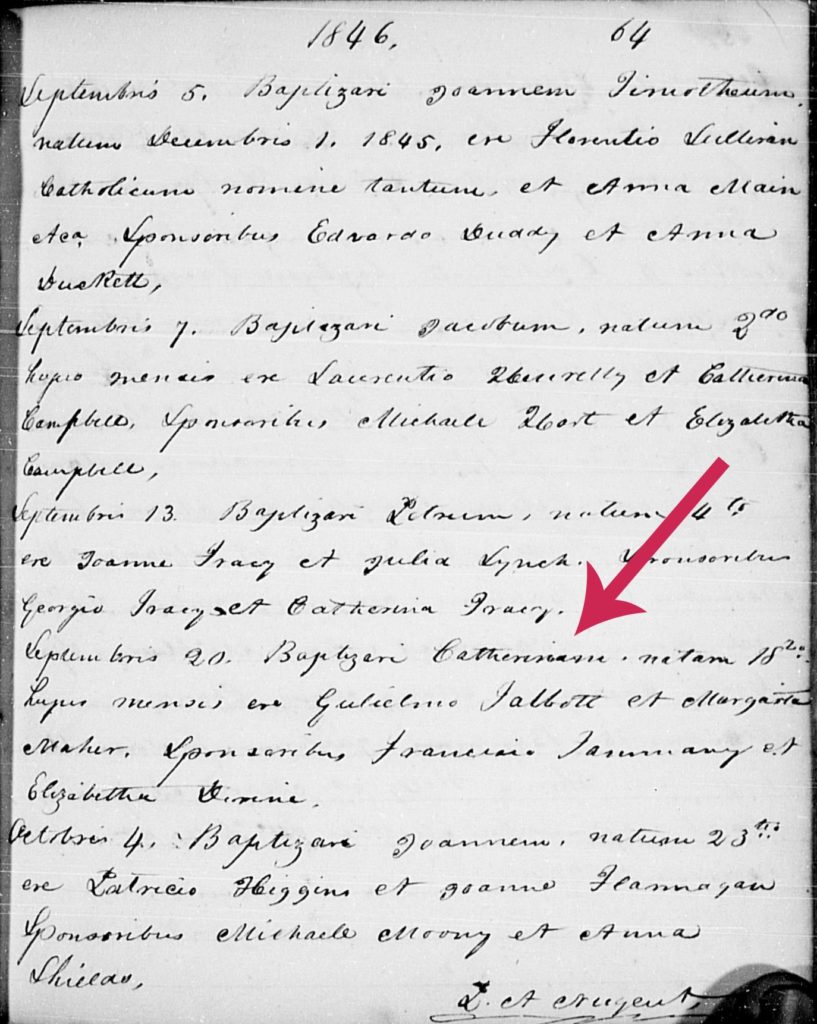 1846. 64
Septembris 5. Baptizavi Joannem Timotheum,
natum Decembris 1. 1845. ex Florentio Sullivan
Catholicum nomine tantum, et Anna Main
Aca. Sponsoribus Edvardo Duddy et Anna
Duckett,
Septembris 7. Baptizavi Jacobum, natum 2do
hujus mensis ex Laurentio et Catherina
Campbell, Sponsoribus Michaele Hort et Elizabetha
Campbell,
Septembris 13. Baptizavi Petrum, natum 4to
ex Joanne Tracy et Julia Lynch. Sponsoribus
Georgio Tracy et Catherina Tracy.
Septembris 20. Baptizavi Catherinam. natam 18
hujus mensis ex Gulielmo Talbott et Margarita
Maher. Sponsoribus Francisco Tammany et
Elizabetha Devine.
Octobris 4. Baptizavi Joannem. natum 23tio
ex Patricio Higgins et Joanne Flannagan
Sponsoribus Michaele Moony et Anna
Shields,
P. A Nugent,